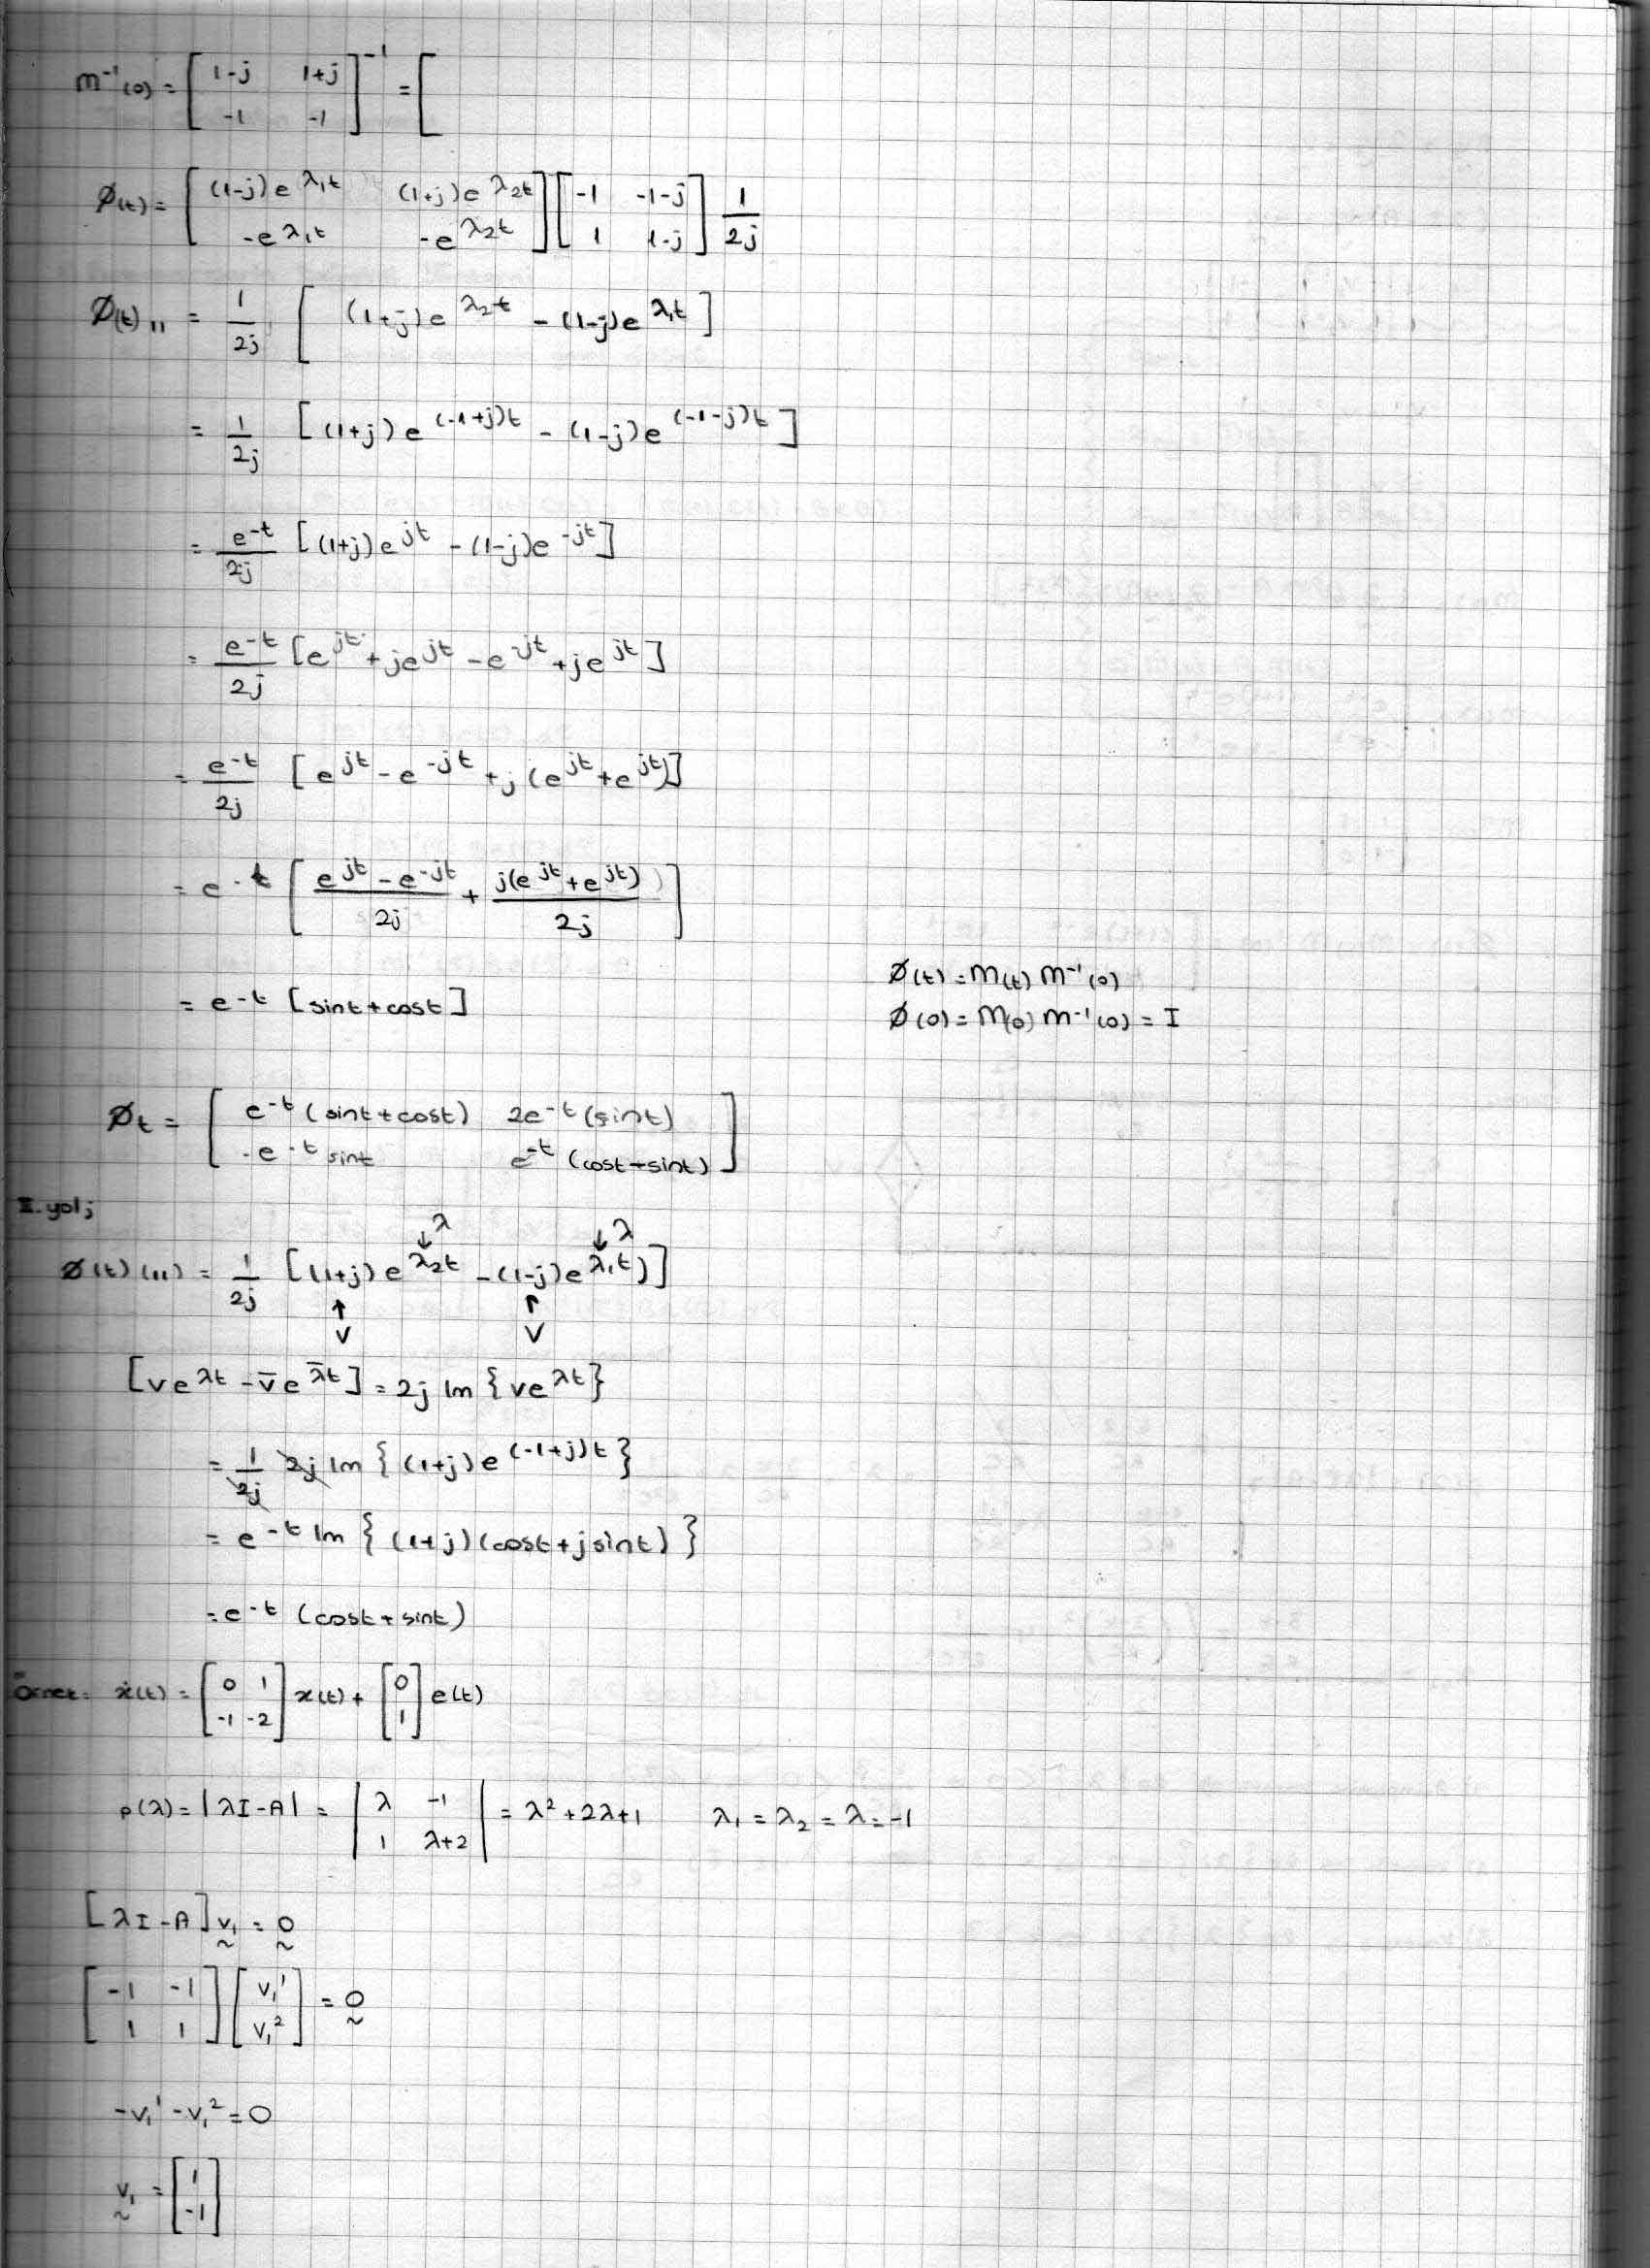 m⁻¹(0) = [ 1-j 1+j ; -1 -1 ]⁻¹ = [
Ø(t) = [ (1-j)e^λ₁t (1+j)e^λ₂t ; -e^λ₁t -e^λ₂t ] [ -1 -1-j ; 1 1-j ] 1/2j
Ø(t)₁₁ = 1/2j [ (1+j)e^λ₂t - (1-j)e^λ₁t ]
= 1/2j [ (1+j)e^(-1+j)t - (1-j)e^(-1-j)t ]
= e^-t/2j [ (1+j)e^jt - (1-j)e^-jt ]
= e^-t/2j [ e^jt + je^jt - e^-jt + je^jt ]
= e^-t/2j [ e^jt - e^-jt + j(e^jt + e^jt) ]
= e^-t [ (e^jt - e^-jt)/2j + j(e^jt + e^jt)/2j ]
= e^-t [sint+cost]
Ø(t) = M(t) M⁻¹(0)
Ø(0) = M(0) M⁻¹(0) = I
Øt = [ e^-t (sint+cost) 2e^-t (sint) ; -e^-t sint e^-t (cost-sint) ]
II. yol;
↓λ ↓λ
Ø(t)(11) = 1/2j [ (1+j)e^λ₂t - (1-j)e^λ₁t) ]
↑ ↑
v v
[ve^λt - v̄e^λ̄t] = 2j Im {ve^λt}
= 1/2j 2j Im { (1+j)e^(-1+j)t }
= e^-t Im { (1+j)(cost+jsint) }
= e^-t (cost+sint)
Örnek: ẋ(t) = [ 0 1 ; -1 -2 ] x(t) + [ 0 ; 1 ] e(t)
p(λ) = |λI-A| = | λ -1 ; 1 λ+2 | = λ²+2λ+1 λ₁ = λ₂ = λ = -1
[λI-A] v₁ = 0
[ -1 -1 ; 1 1 ] [ v₁¹ ; v₁² ] = 0
-v₁¹ - v₁² = 0
v₁ = [ 1 ; -1 ]